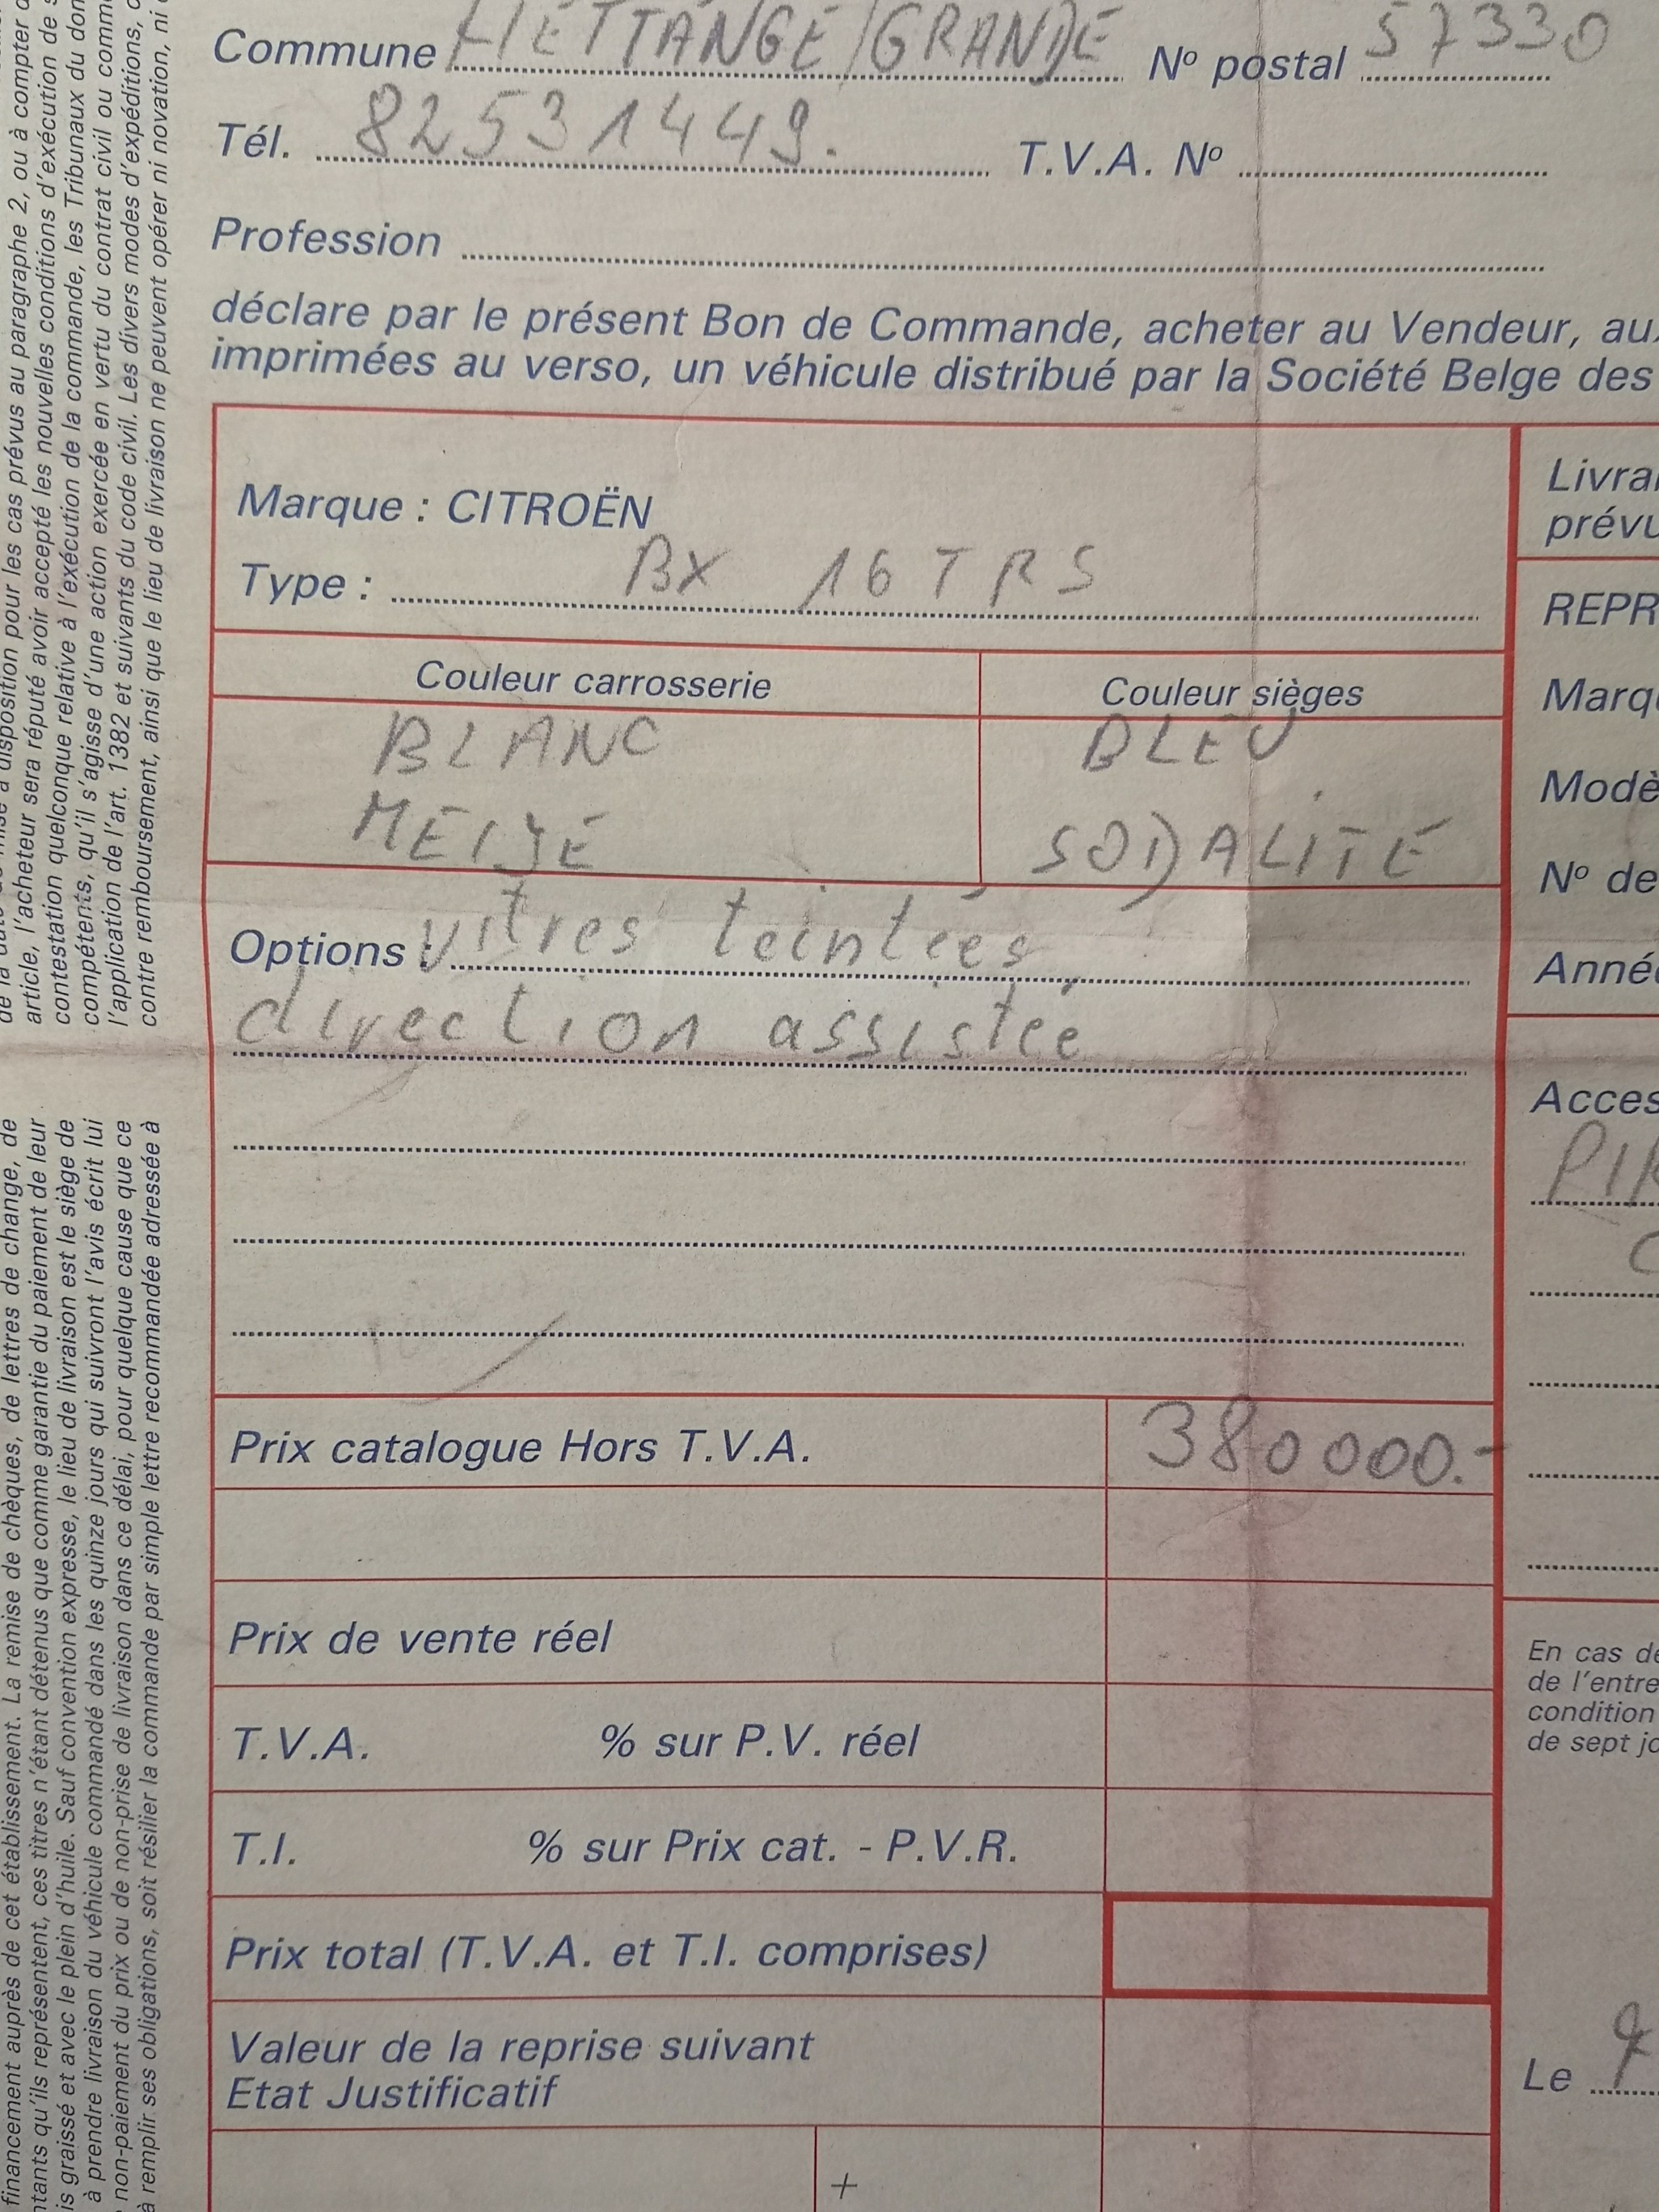 Commune HETTANGE/GRANDE Nº postal 57330
Tél. 82531449. T.V.A. Nº
Profession
déclare par le présent Bon de Commande, acheter au Vendeur, au
imprimées au verso, un véhicule distribué par la Société Belge des
Marque : CITROËN
Type : BX 16 TRS
Couleur carrosserie
Couleur sièges
BLANC
MEIJE
BLEU
SODALITE
Options : vitres teintées,
direction assistée
Prix catalogue Hors T.V.A. 380000.-
Prix de vente réel
T.V.A. % sur P.V. réel
T.I. % sur Prix cat. - P.V.R.
Prix total (T.V.A. et T.I. comprises)
Valeur de la reprise suivant
Etat Justificatif
+
Livrai
prévu
REPR
Marq
Modè
Nº de
Anné
Acces
En cas de
de l'entre
condition
de sept jo
Le
à disposition pour les cas prévus au paragraphe 2, ou à compter
article, l'acheteur sera réputé avoir accepté les nouvelles conditions d'exécution de
contestation quelconque relative à l'exécution de la commande, les Tribunaux du dom
compétents, qu'il s'agisse d'une action exercée en vertu du contrat civil ou comm
l'application de l'art. 1382 et suivants du code civil. Les divers modes d'expéditions,
contre remboursement, ainsi que le lieu de livraison ne peuvent opérer ni novation, ni
financement auprès de cet établissement. La remise de chèques, de lettres de change, de
ntants qu'ils représentent, ces titres n'étant détenus que comme garantie du paiement de leur
is graissé et avec le plein d'huile. Sauf convention expresse, le lieu de livraison est le siège de
à prendre livraison du véhicule commandé dans les quinze jours qui suivront l'avis écrit lui
non-paiement du prix ou de non-prise de livraison dans ce délai, pour quelque cause que ce
à remplir ses obligations, soit résilier la commande par simple lettre recommandée adressée à